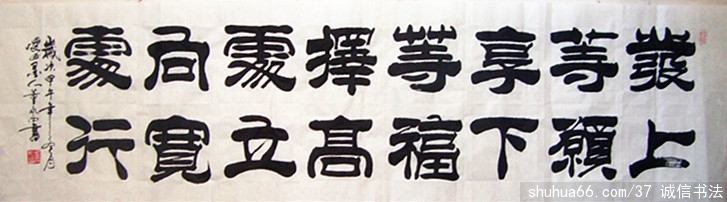 發上
等願
享下
等福
擇高
處立
向寬
處行
歲次甲午年冬月
書
shuhua66.com/37 诚信书法